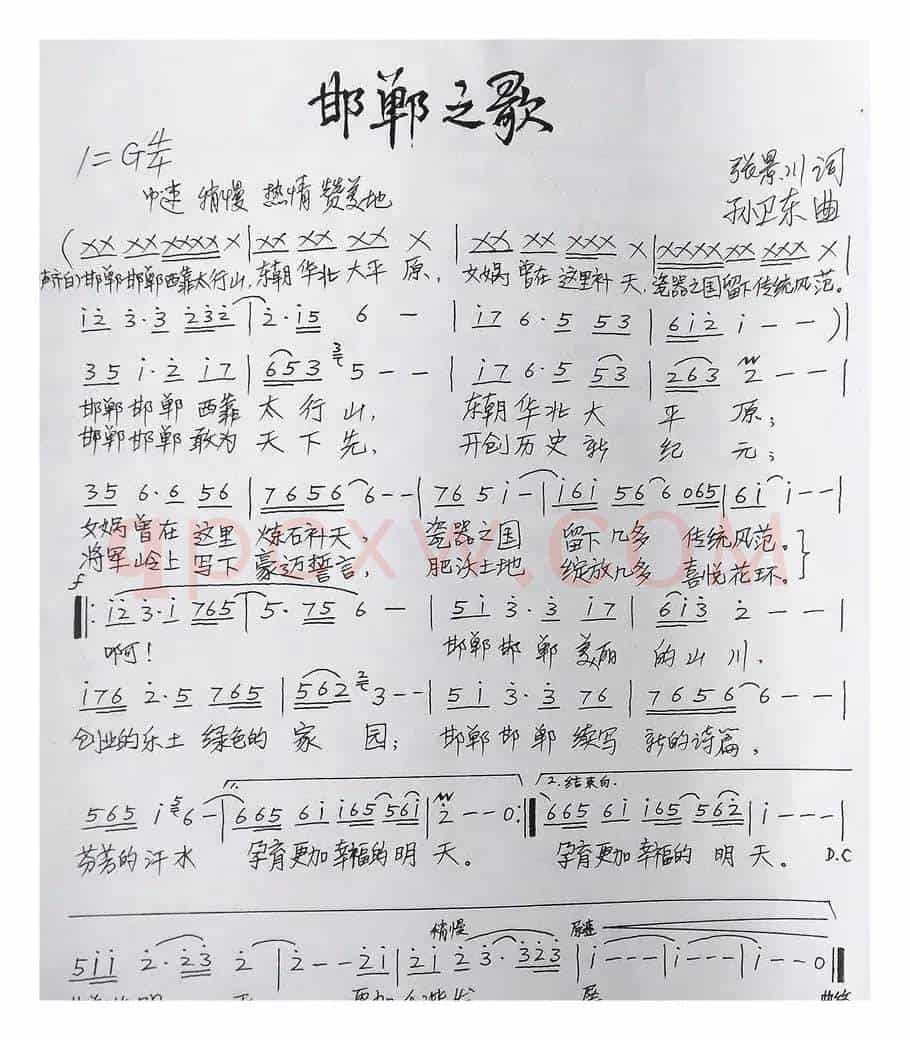 邯郸之歌
1=G 4/4
中速 稍慢 热情 赞美地
张景川 词
孙卫东 曲
(XX XX XXXX X | XX XX XX X | XX XX XXX X | XXXX XX XXX X |
(齐白)邯郸邯郸西靠太行山,东朝华北大平原, 女娲曾在这里补天,瓷器之国留下传统风范。
i2 3·3 232 | 2·i5 6 - | i7 6·5 53 | 6i2 i - - )|
35 i·2 i7 | 653 5 - - | i7 6·5 53 | 263 2 - - |
邯郸邯郸西靠太行山, 东朝华北大平原;
邯郸邯郸敢为天下先, 开创历史新纪元;
35 6·6 56 | 7656 6 - - | 76 5 i - | i6i 56 6 065 | 6i i - - |
女娲曾在这里炼石补天, 瓷器之国 留下几多 传统风范。
将军岭上写下豪迈誓言, 肥沃土地 绽放几多 喜悦花环。
f
‖: i2 3·i 765 | 5·75 6 - | 5i 3·3 i7 | 6i3 2 - - |
啊! 邯郸邯郸美丽的山川,
i76 2·5 765 | 562 3 - - | 5i 3·3 76 | 7656 6 - - |
创业的乐土 绿色的家园; 邯郸邯郸续写 新的诗篇,
1. 2.结束句.
565 i 6 - | 665 6i i65 56i | 2 - - 0 :‖ 665 6i i65 562 | i - - - |
芬芳的汗水 孕育更加幸福的明天。 孕育更加幸福的明天。 D.C
稍慢 原速
5ii 2·23 2 | 2 - - 2i | 2i 2 3·323 | i - - - | i - - - | i - - 0 ‖
qpcxw.com